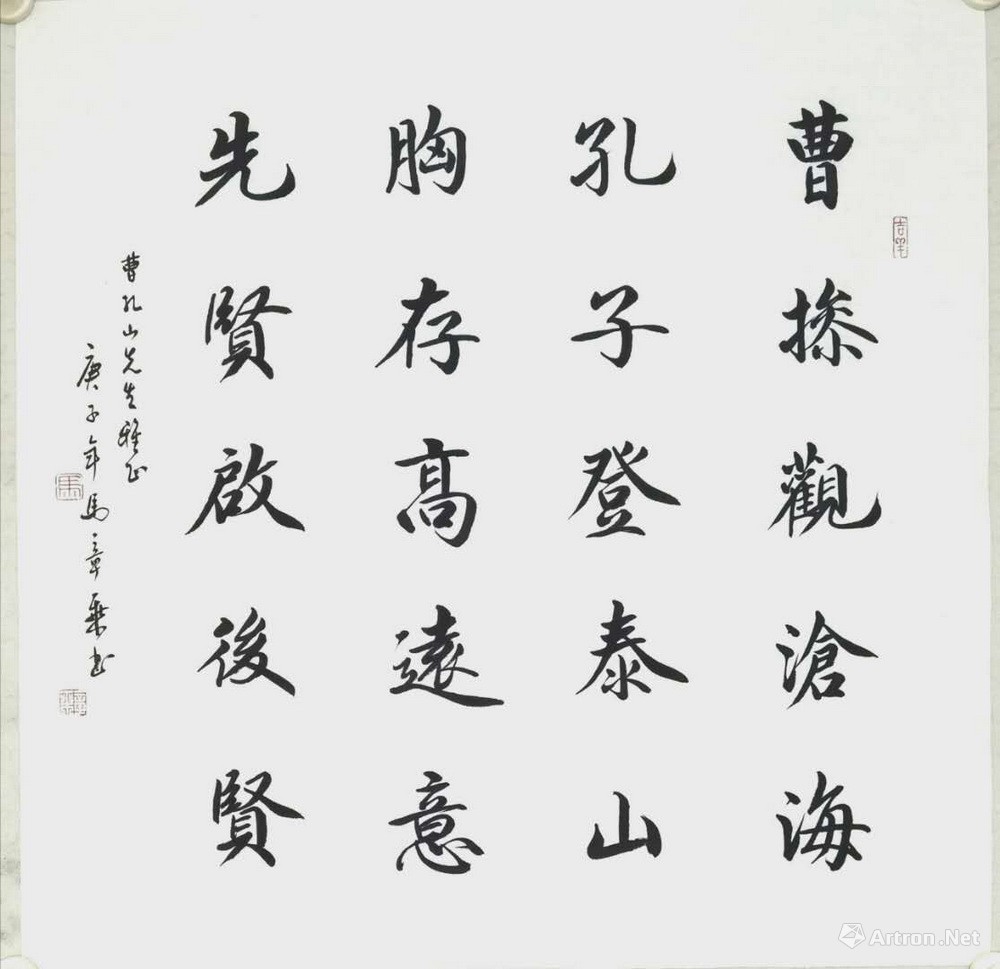 曹掺觀滄海
孔子登泰山
胸存高遠意
先賢啟後賢
曹孔山先生雅正
庚子年馬章乘书
Artron.Net